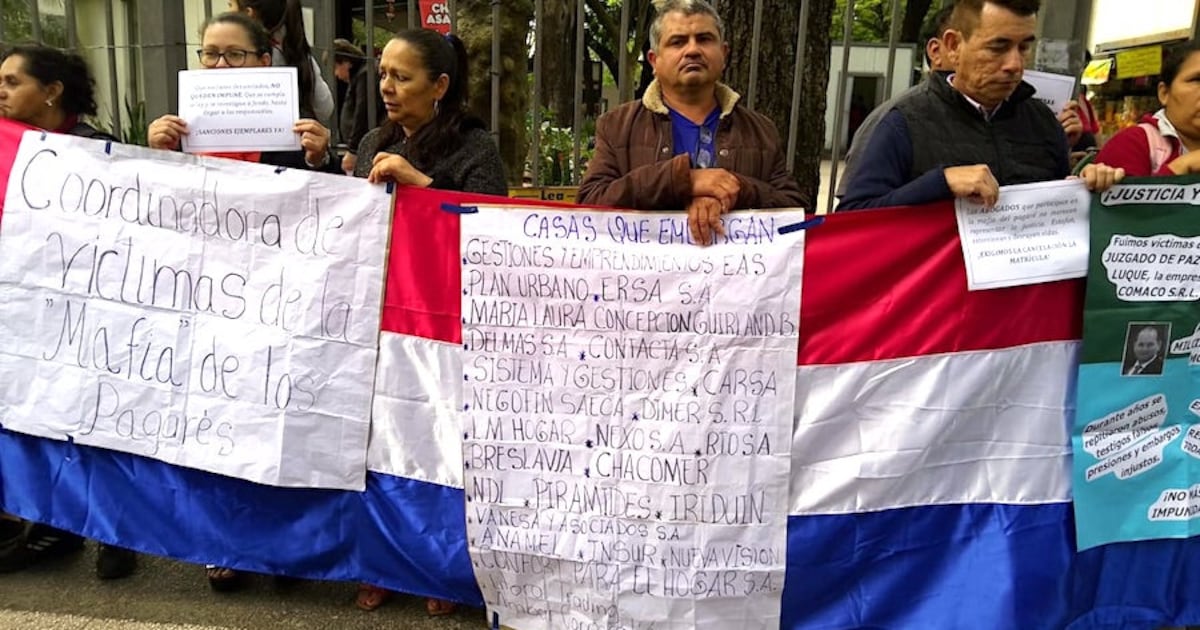 CH
ASA
Que
NO
QUEDEN IMPUNE. Que se
investigue a fondo, hasta
¡SANCIONES EJEMPLARES YA
Coordinadora de
Víctimas de la
"Mafia" de los
Pagarés
Lea
CASAS QUE EMBARGAN
.GESTIONES Y EMPRENDIMIENTOS EAS
.PLAN URBANO .ERSA S.A
.MARIA LAURA CONCEPCION GUIRLAND.B
.DELMAS S.A * CONTACTA S.A
.SISTEMA Y GESTIONES * CARSA
*NEGOTIN SAECA * DIMER S.R.L
.LM HOGAR * NEXO S.A * RIOSA
*BRESLAVIA * CHACOMER
*NDL * PIRAMIDES * IRIDUIN
*VANESA Y ASOCIADOS S.A
*ANAMEL * INSUR * NUEVA VISION
*CONFORT PARA EL HOGAR S.A.
Trading
Los abogados que participen en
la mafia del pagaré no merecen
representar la justicia. Estafan,
extorsionan y destruyen vidas.
¡EXIGIMOS LA CANCELACIÓN LA
MATRÍCULA!
¡JUSTICIA Y
Fuimos víctimas
JUZGADO DE PAZ
LUQUE, la empres
COMACO S.R.L
Durante años se
repitieron abusos,
testigos falsos,
presiones y embargos
injustos.
¡NO MÁS
IMPUNIDA